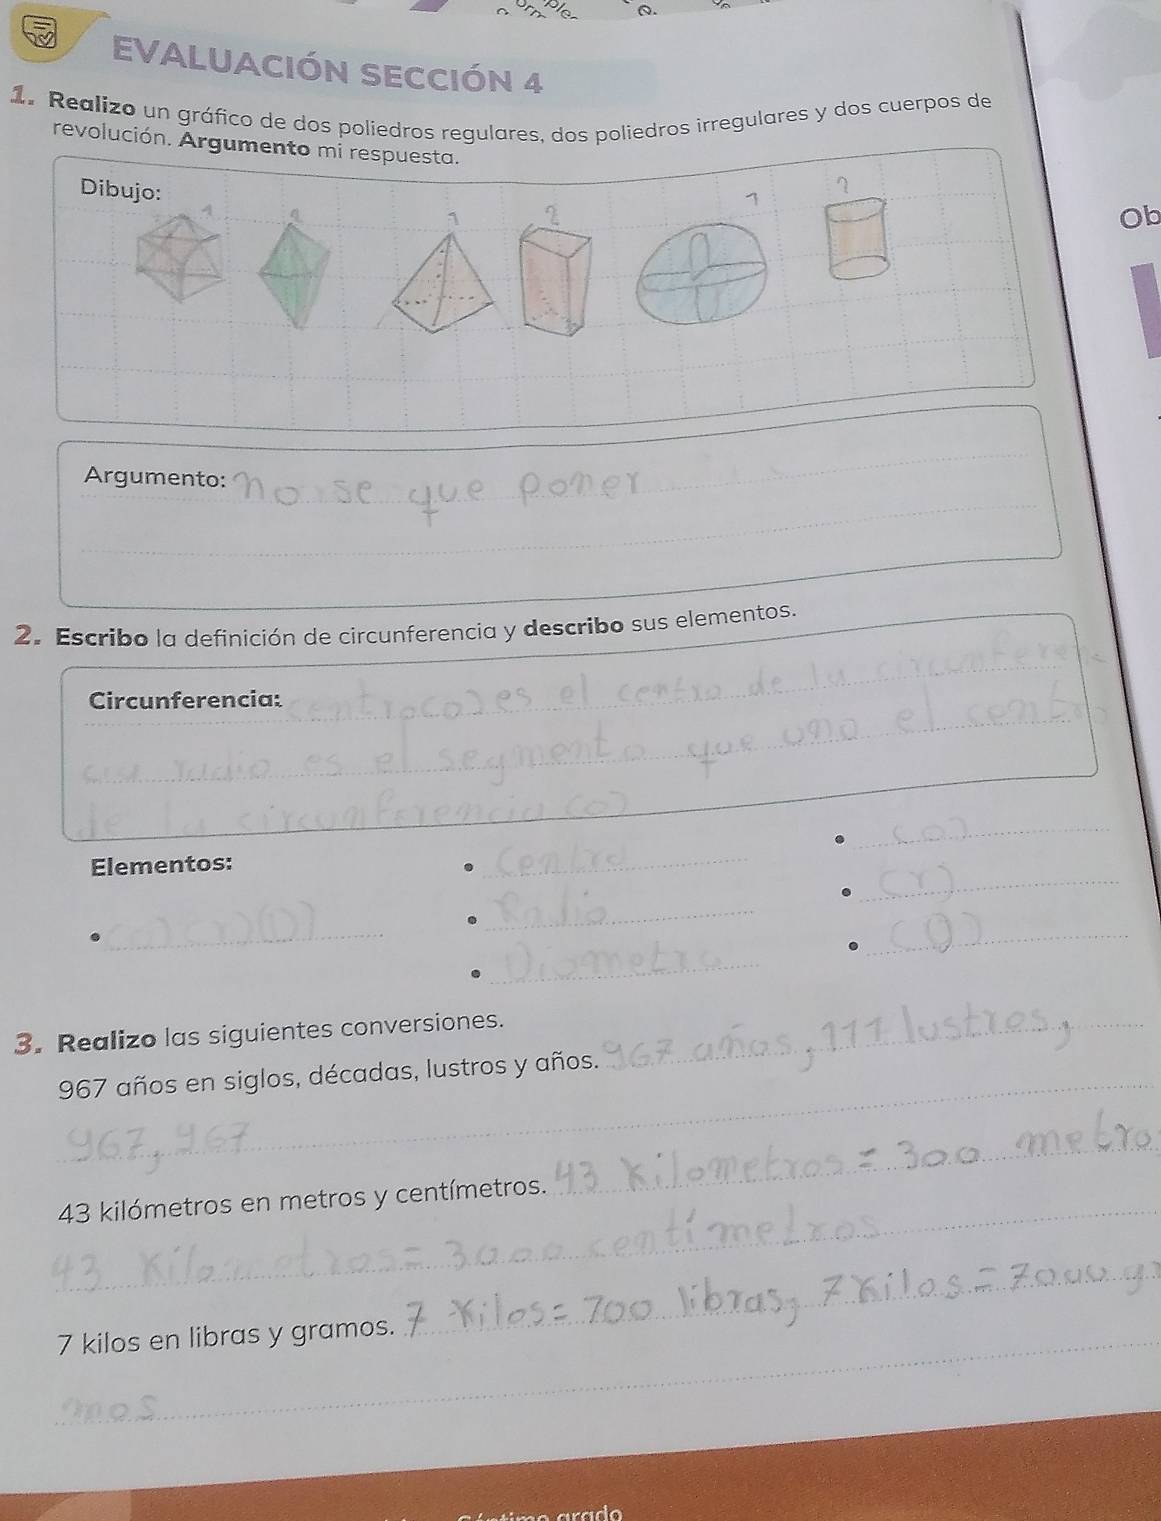 EVALUACIÓN SECCIÓN 4
1. Realizo un gráfico de dos poliedros regulares, dos poliedros irregulares y dos cuerpos de
revolución. Argumento mi respuesta.
Dibujo:
1 2 1 2 1 2
Ob
Argumento: no se que poner
2. Escribo la definición de circunferencia y describo sus elementos.
Circunferencia: centro(o) es el centro de la circunferen
cia radio es el segmento que uno el centro
de la circunferencia (o)
Elementos:
• (o) (r) (D)
• Centro
• Radio
• Diametro
• (o)
• (r)
• (D)
3. Realizo las siguientes conversiones.
967 años en siglos, décadas, lustros y años. 967 años, 111 lustros,
967, 967
43 kilómetros en metros y centímetros. 43 kilometros = 300 metro
43 kilometros = 3000 centímetros
7 kilos en libras y gramos. 7 kilos = 700 libras, 7 kilos = 7000 gra
mos
Séptimo grado